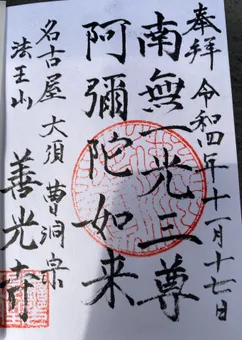 奉拝
令和四年十一月十七日
南無一光三尊
阿彌陀如来
名古屋 大須 曹洞宗
法王山 善光寺